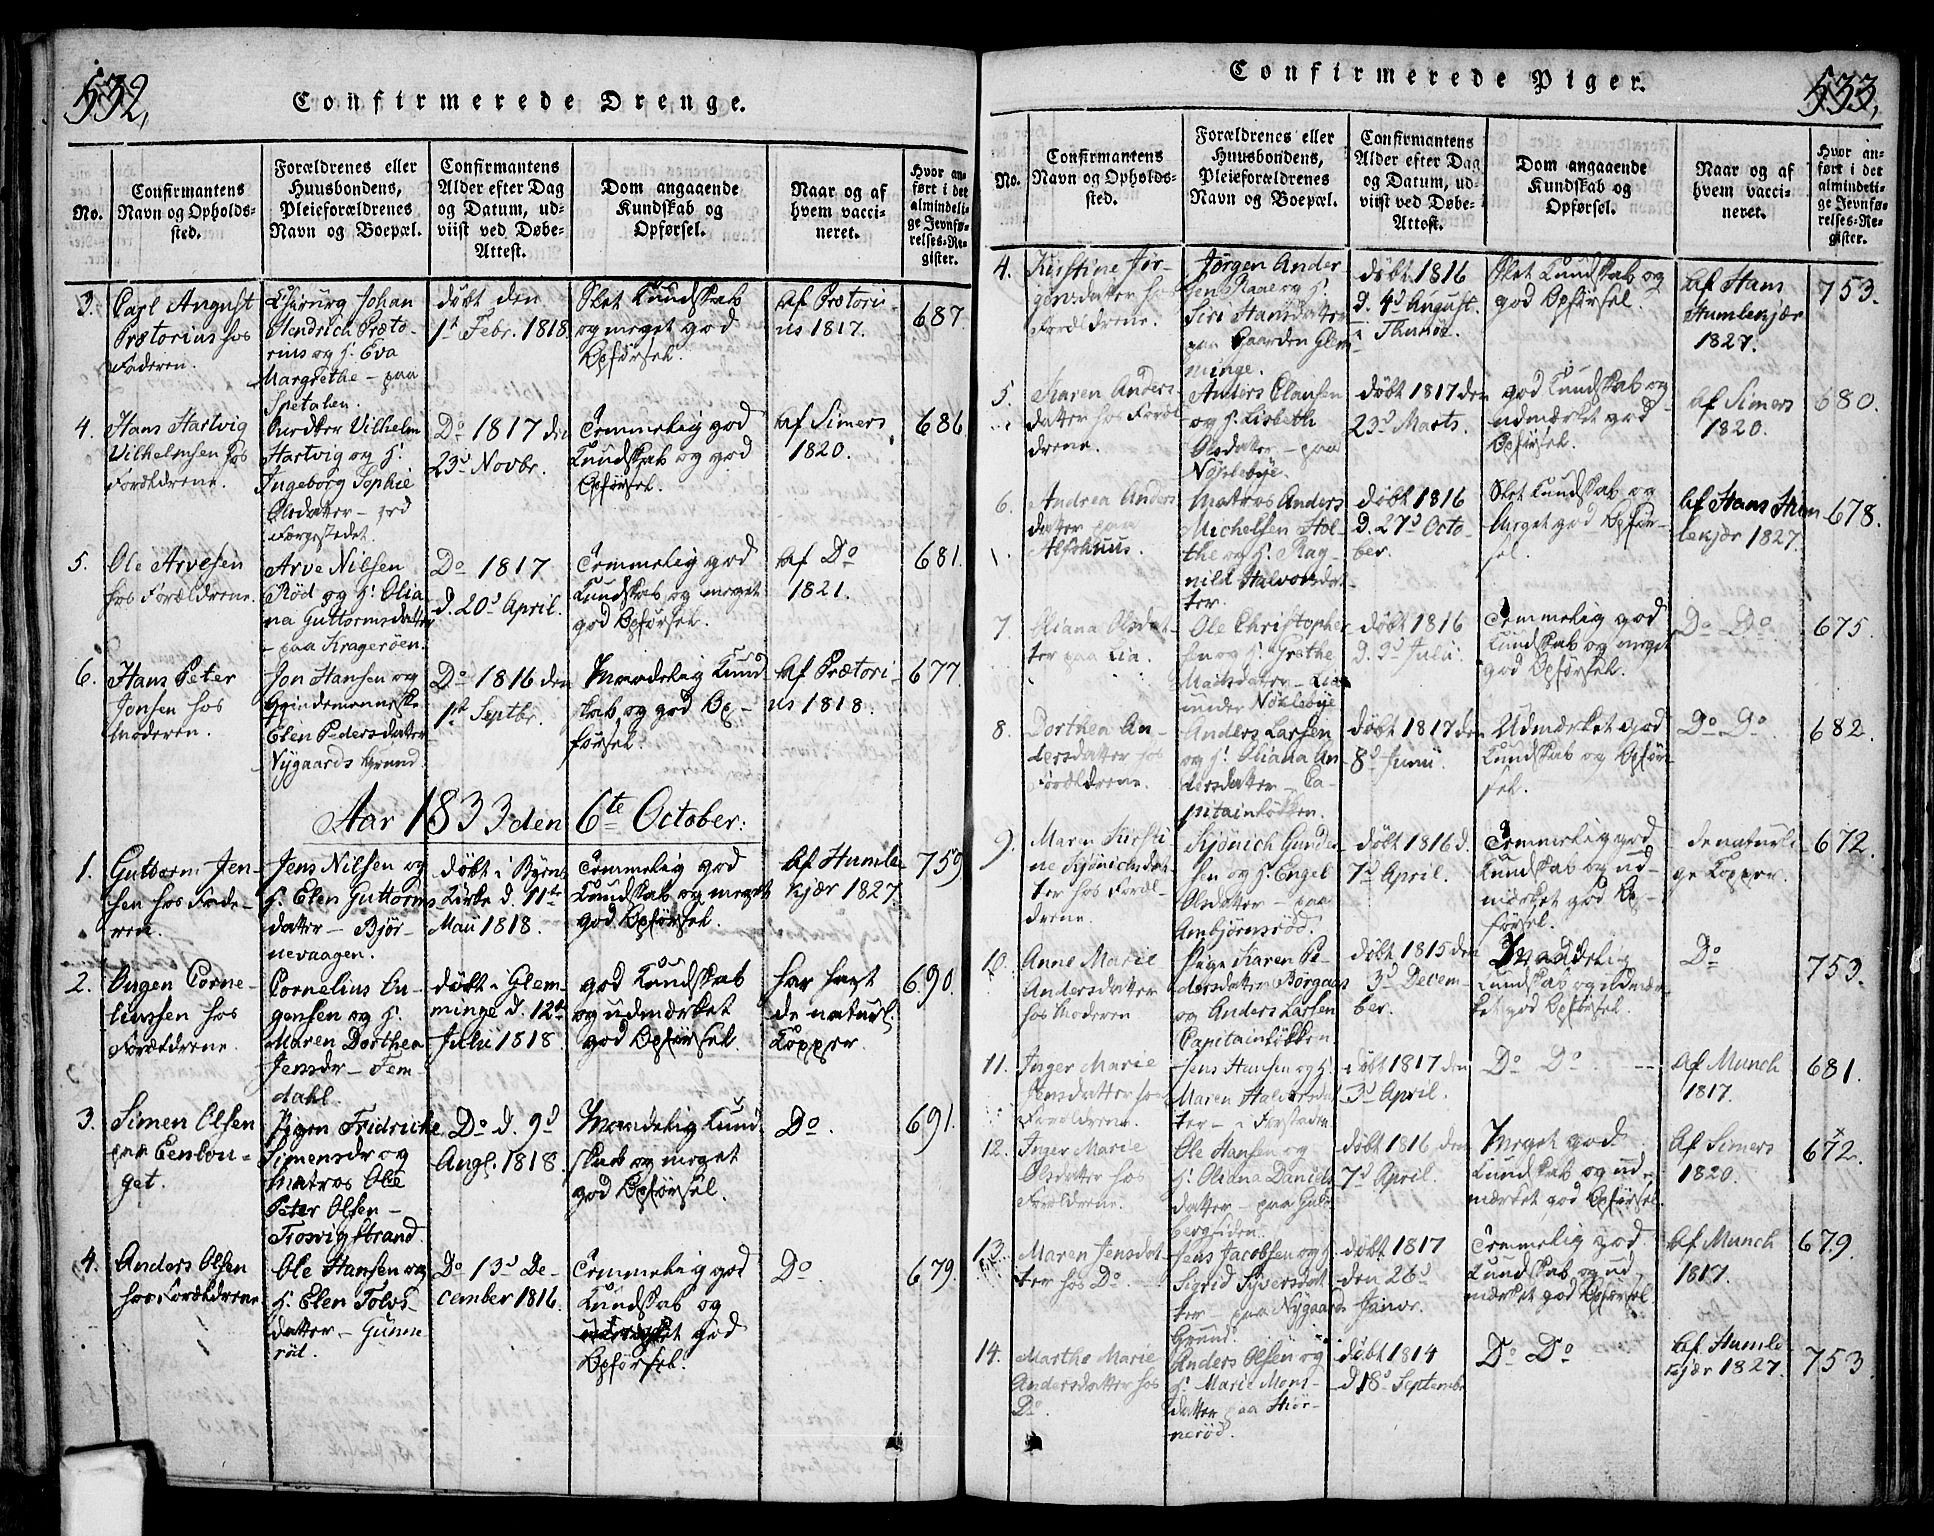 532,
Confirmerede Drenge.
No.
Confirmantens
Navn og Opholds-
sted.
Forældrenes eller
Huusbondens,
Pleieforældrenes
Navn og Boepæl.
Confirmantens
Alder efter Dag
og Datum, ud-
viist ved Døbe-
Attest.
Dom angaaende
Kundskab og
Opførsel.
Naar og af
hvem vacci-
neret.
Hvor an-
ført i det
almindeli-
ge Jevnfø-
relses-Re-
gister.
3.
Carl August
Prætorius hos
Faderen.
Chirurg Johan
Hendrich Præto-
rius og H. Eva
Margrethe – paa
Spetalen.
døbt den
1t Febr. 1818.
Slet Kundskab
og meget god
Opførsel.
Af Prætori-
us 1817.
687
4.
Hans Hartvig
Vilhelmsen hos
Forældrene.
Vilhelm
Hartvig og H.
Ingeborg Sophie
Olsdatter – ved
Færgestedet.
Do 1817 den
23d Novbr.
Temmelig god
Kundskab og god
Opførsel.
Af Simers
1820.
686
5.
Ole Arvesen
hos Forældrene.
Arve Nilsen
Rød og H. Olia
na Guttormsdatter
– paa Kragerøen.
Do 1817
d. 20d April.
Temmelig god
Kundskab og meget
god Opførsel.
Af Do
1821.
681.
6.
Hans Peter
Jonsen hos
Moderen.
Jon Hansen og
Qvindemenneske
Elen Pedersdatter
Nygaards Grund.
Do 1816 den
1t Septbr.
Maadelig Kund
skab og god Op-
førsel.
Af Prætori-
us 1818.
677
Aar 1833 den 6te October:
1.
Guttorm Jen-
sen hos Fade-
ren.
Jens Nilsen og
H. Elen Guttorms
datter – Bjør-
nevaagen.
døbt i Byens
Kirke d. 11te
Maii 1818.
Temmelig god
Kundskab og meget
god Opførsel.
Af Humle
kjær 1827
759
2.
Eugen Corne-
liussen hos
Forældrene.
Cornelius Eu-
gensen og H.
Maren Dorthea
Jensdr – Fem-
dahl.
døbt i Glem-
minge d. 12te
Julii 1818.
god Kundskab
og udmærket
god Opførsel.
har havt
de naturl.
Kopper.
690.
3.
Simen Olsen
paa Eenhou-
get.
Pigen Fridriche
Simensdr og
Matros Ole
Peter Olsen –
Trosvigstrand.
Do d. 9d
Aug. 1818.
Maadelig Kund
skab og meget
god Opførsel.
Do.
691.
4.
Anders Olsen
hos Forældrene
Ole Hansen og
H. Elen Tolvs-
datter – Gunne
röd.
Do 13d De-
cember 1816.
Temmelig god
Kundskab og
god
Opførsel.
Do.
679.
533,
Confirmerede Piger.
No.
Confirmantens
Navn og Opholds-
sted.
Forældrenes eller
Huusbondens,
Pleieforældrenes
Navn og Boepæl.
Confirmantens
Alder efter Dag
og Datum, ud-
viist ved Døbe-
Attest.
Dom angaaende
Kundskab og
Opførsel.
Naar og af
hvem vacci-
neret.
Hvor an-
ført i det
almindeli-
ge Jevnfø-
relses-Re-
gister.
4.
Kirstine Jør-
gensdatter hos
Forældrene.
Jørgen Ander
sen og H.
Siri Hansdatter
paa Gaarden Glem-
minge.
døbt 1816
d. 4d August.
i Thunøe.
Slet Kundskab og
god Opførsel.
Af Hans
Humlekjær
1827.
753.
5.
Karen Anders
datter hos Foræl
drene.
Anders Clausen
og H. Lisbeth
Olsdatter – paa
Nøklebye.
døbt 1817 den
23d Marts.
god Kundskab og
udmærket god
Opførsel.
Af Simers
1820.
680.
6.
Andrea Anders
datter paa
Alfshuus.
Matros Anders
Michelsen Hol-
the og H. Rag-
nild Halvorsdat-
ter.
døbt 1816
d. 27d Octo-
ber.
Slet Kundskab og
Meget god Opfør-
sel.
Af Hans Hum
lekjær 1827.
678.
7.
Oliana Olsdat-
ter paa Lia.
Ole Christopher
sen og H. Grethe
Matisdatter – Lia
under Nøklebye
døbt 1816
d. 3d Julii.
Temmelig god
Kundskab og meget
god Opførsel.
Do Do
675.
8.
Dorthea An-
dersdatter hos
Forældrene.
Anders Larsen
og H. Oliana An
dersdatter – Ca-
pitainløkken.
døbt 1817 den
8d Junii.
Udmærket god
Kundskab og Opfør-
sel.
Do Do
682.
9.
Maren Kirsti
ne Kjønichsdat-
ter hos Foræl-
drene.
Kjønich Gunder
sen og H. Engel
Olsdatter – paa
Ambjørnsrød.
døbt 1816 d.
7d April.
Temmelig god
Kundskab og ud-
mærket god Op-
førsel.
de naturli-
ge Kopper.
672.
10.
Anne Marie
Andersdatter
hos Moderen
Pige Karen Pe-
dersdatter Borgaas
og Anders Larsen
Capitainløkken.
døbt 1815 den
3d Decem-
ber.
Maadelig
Kundskab og udmær-
ket god Opførsel.
Do
753.
11.
Inger Marie
Jensdatter hos
Forældrene.
Jens Hansen og H.
Maren Halvorsdat
ter – i Forstaden
døbt 1817 den
3d April.
Do Do
Af Munch
1817.
681.
12.
Inger Marie
Olsdatter hos
Forældrene.
Ole Hansen og
H. Oliana Daniels
datter – paa Guls
bergsiden.
døbt 1816 den
7d April.
Meget god
Kundskab og ud-
mærket god Opførsel.
Af Simers
1820.
672.
13.
Maren Jensdat-
ter hos Do.
Jens Jacobsen og H.
Sigrid Syversdat
ter – paa Nygaards
Grund.
døbt 1817
den 26d
Janvr.
Temmelig god
Kundskab og ud-
mærket god Opførsel
Af Munch
1817.
679.
14.
Marthe Marie
Andersdatter hos
Do.
Anders Olsen og
H. Marie Mons-
datter paa Hiør-
nerød.
døbt 1814
d. 18d Septembr
Do Do
Af Humle
kjær 1827.
753.